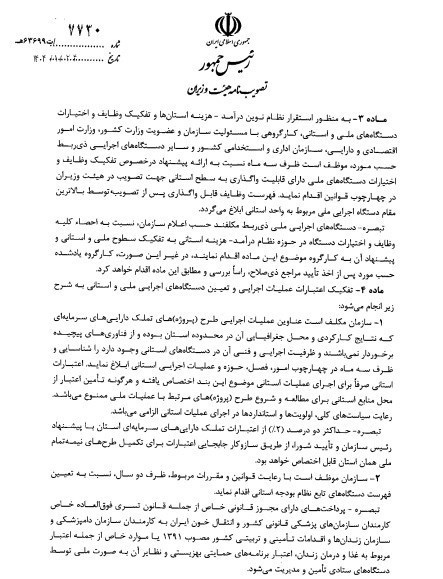 جمهوری اسلامی ایران
رئیس جمهور
تصویب‌نامه هیئت وزیران
شماره ۷۷۲۰/ت۶۳۶۹۹هـ
تاریخ
ماده ۳- به منظور استقرار نظام نوین درآمد - هزینه استان‌ها و تفکیک وظایف و اختیارات
دستگاه‌های ملی و استانی، کارگروهی با مسئولیت سازمان و عضویت وزارت کشور، وزارت امور
اقتصادی و دارایی، سازمان اداری و استخدامی کشور و سایر دستگاه‌های اجرایی ذی‌ربط
حسب مورد، موظف است ظرف سه ماه نسبت به ارائه پیشنهاد درخصوص تفکیک وظایف و
اختیارات دستگاه‌های ملی دارای قابلیت واگذاری به سطح استانی جهت تصویب در هیئت وزیران
در چهارچوب قوانین اقدام نماید. فهرست وظایف قابل واگذاری پس از تصویب توسط بالاترین
مقام دستگاه اجرایی ملی مربوط به واحد استانی ابلاغ می‌گردد.
تبصره- دستگاه‌های اجرایی ملی ذی‌ربط مکلفند حسب اعلام سازمان، نسبت به احصاء کلیه
وظایف و اختیارات دستگاه در حوزه نظام درآمد- هزینه استانی به تفکیک سطوح ملی و استانی و
پیشنهاد آن به کارگروه موضوع این ماده اقدام نمایند، در غیر این صورت، کارگروه یادشده
حسب مورد پس از اخذ تأیید مراجع ذی‌صلاح، رأساً بررسی و مطابق این ماده اقدام خواهد کرد.
ماده ۴- تفکیک اعتبارات عملیات اجرایی و تعیین دستگاه‌های اجرایی ملی و استانی به شرح
زیر انجام می‌شود:
۱- سازمان مکلف است عناوین عملیات اجرایی طرح (پروژه)های تملک دارایی‌های سرمایه‌ای
که نتایج کارکردی و محل جغرافیایی آن در محدوده استان بوده و از فناوری‌های پیچیده
برخوردار نمی‌باشند و ظرفیت اجرایی و فنی آن در دستگاه‌های استانی وجود دارد را شناسایی و
ظرف سه ماه در چهارچوب امور، فصل، حوزه و عملیات اجرایی استانی ابلاغ نماید. اعتبارات
استانی صرفاً برای اجرای عملیات استانی موضوع این بند اختصاص یافته و هرگونه تأمین اعتبار از
محل منابع استانی برای مطالعه و شروع طرح (پروژه)های مرتبط با عملیات ملی ممنوع می‌باشد.
رعایت سیاست‌های کلی، اولویت‌ها و استانداردها در اجرای عملیات استانی الزامی می‌باشد.
تبصره- حداکثر دو درصد (۲٪) از اعتبارات تملک دارایی‌های سرمایه‌ای استان با پیشنهاد
رئیس سازمان و تأیید شورا، از طریق سازوکار جابجایی اعتبارات برای تکمیل طرح‌های نیمه‌تمام
ملی همان استان قابل اختصاص خواهد بود.
۲- سازمان موظف است با رعایت قوانین و مقررات مربوط، ظرف دو سال، نسبت به تعیین
فهرست دستگاه‌های تابع نظام بودجه استانی اقدام نماید.
تبصره - پرداخت‌های دارای مجوز قانونی خاص از جمله قانون تسری فوق‌العاده خاص
کارمندان سازمان‌های پزشکی قانونی کشور و انتقال خون ایران به کارمندان سازمان دامپزشکی و
سازمان زندان‌ها و اقدامات تأمینی و تربیتی کشور مصوب ۱۳۹۱ یا موارد خاص از جمله اعتبار
مربوط به غذا و درمان زندان، اعتبار برنامه‌های حمایتی بهزیستی و نظایر آن به صورت ملی توسط
دستگاه‌های ستادی تأمین و مدیریت می‌شود.